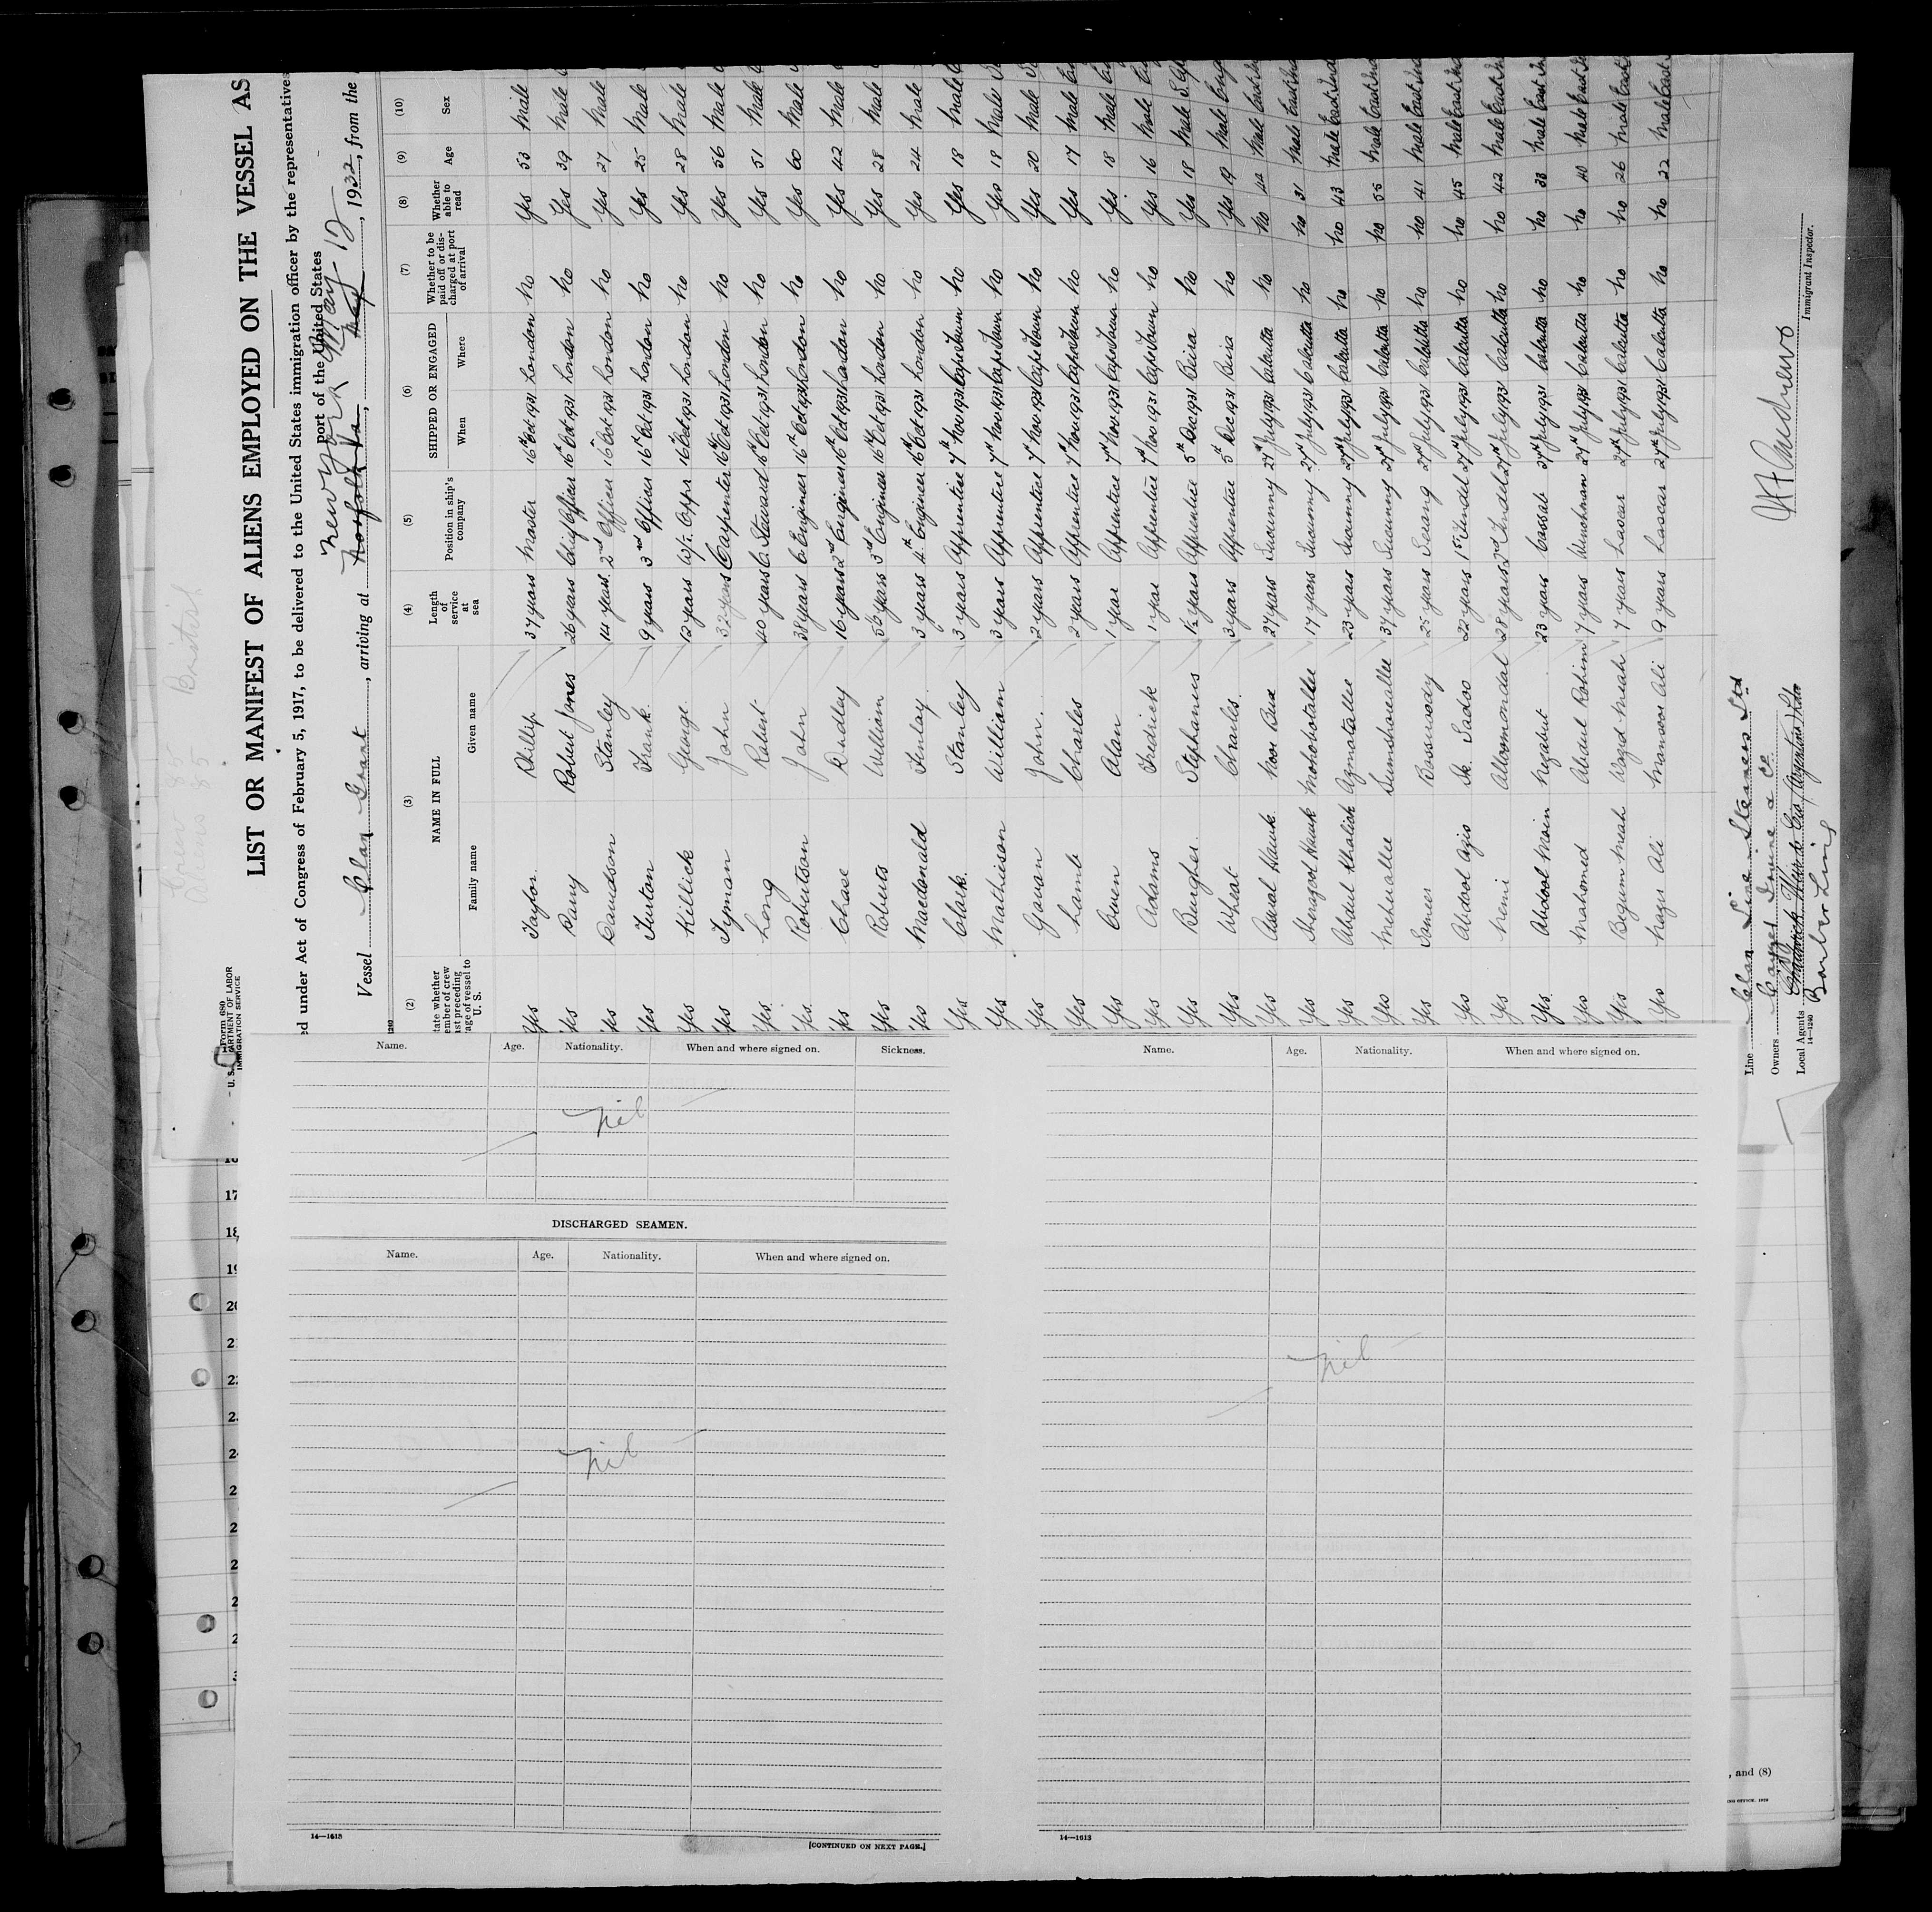 Crew 85 British
Aliens 85
Form 680
U. S. DEPARTMENT OF LABOR
IMMIGRATION SERVICE
LIST OR MANIFEST OF ALIENS EMPLOYED ON THE VESSEL AS
ed under Act of Congress of February 5, 1917, to be delivered to the United States immigration officer by the representatives
port of the United States
New York May 12
Vessel Clan Grant, arriving at Norfolk Va, May, 1932, from the
(2) (3) (4) (5) (6) (7) (8) (9) (10)
NAME IN FULL SHIPPED OR ENGAGED
tate whether ember of crew st preceding age of vessel to U. S. Family name Given name Length of service at sea Position in ship's company When Where Whether to be paid off or discharged at port of arrival Whether able to read Age Sex
Yes Taylor Phillip 37 years Master 16th Oct 1931 London No Yes 53 Male
Yes Parry Robert Jones 26 years Chief Officer 16th Oct 1931 London No Yes 39 Male
Yes Davidson Stanley 14 years 2nd Officer 16th Oct 1931 London No Yes 27 Male
Yes Turton Frank 9 years 3rd Officer 16th Oct 1931 London No Yes 25 Male
Yes Killick George 12 years W/T. Opr 16th Oct 1931 London No Yes 28 Male
Yes Tyman John 32 years Carpenter 16th Oct 1931 London No Yes 56 Male
Yes Long Robert 40 years C. Steward 16th Oct 1931 London No Yes 51 Male
Yes Robertson John 38 years C. Engineer 16th Oct 1931 London No Yes 60 Male
Yes Chase Dudley 16 years 2nd Engineer 16th Oct 1931 London No Yes 42 Male
Yes Roberts William 5 6/12 years 3rd Engineer 16th Oct 1931 London No Yes 28 Male
Yes Macdonald Finlay 3 years 4th Engineer 16th Oct 1931 London No Yes 24 Male
Yes Clark Stanley 3 years Apprentice 7th Nov 1931 Cape Town No Yes 18 Male
Yes Mathieson William 3 years Apprentice 7th Nov 1931 Cape Town No Yes 18 Male
Yes Gavan John 2 years Apprentice 7th Nov 1931 Cape Town No Yes 20 Male
Yes Lamb Charles 2 years Apprentice 7th Nov 1931 Cape Town No Yes 17 Male
Yes Owen Alan 1 year Apprentice 7th Nov 1931 Cape Town No Yes 18 Male
Yes Adams Fredrick 1 year Apprentice 7th Nov 1931 Cape Town No Yes 16 Male
Yes Burgher Stephanus 1½ years Apprentice 5th Dec 1931 Beira No Yes 18 Male
Yes Wheat Charles 3 years Apprentice 5th Dec 1931 Beira No Yes 19 Male
Yes Hauk Noor Bux 27 years Seacunny 27th July 1931 Calcutta No No 44 Male East
Yes Hauk 17 years Seacunny 27th July 1931 Calcutta No No 31 Male East
Yes Abdul Khalick 23 years Seacunny 27th July 1931 Calcutta No No 43 Male East
Yes Meherallee 37 years Seacunny 27th July 1931 Calcutta No No 55 Male East
Yes Samee 25 years Serang 27th July 1931 Calcutta No No 41 Male East
Yes Abdool Azis Sk. Sadoo 22 years 1st Tindel 27th July 1931 Calcutta No No 45 Male East
Yes 28 years 2nd Tindel 27th July 1931 Calcutta No No 42 Male East
Yes Abdool Moin 23 years Cassab 27th July 1931 Calcutta No No 38 Male East
Yes Mahomed Abdul Rohim 7 years Winchman 27th July 1931 Calcutta No No 40 Male East
Yes Begum Meah Wazid Meah 7 years Lascar 27th July 1931 Calcutta No No 26 Male East
Yes Nazir Ali Mansoor Ali 9 years Lascar 27th July 1931 Calcutta No No 22 Male East
Line Clan Line Steamers Ltd
Owners Cayzer Irvine & Co
Local Agents
Barber Line
14—1240
Immigrant Inspector.
Name. Age. Nationality. When and where signed on. Sickness.
Nil
DISCHARGED SEAMEN.
Name. Age. Nationality. When and where signed on.
Nil
14—1613
[CONTINUED ON NEXT PAGE.]
Name. Age. Nationality. When and where signed on.
Nil
14—1613
17
20
, and (8)